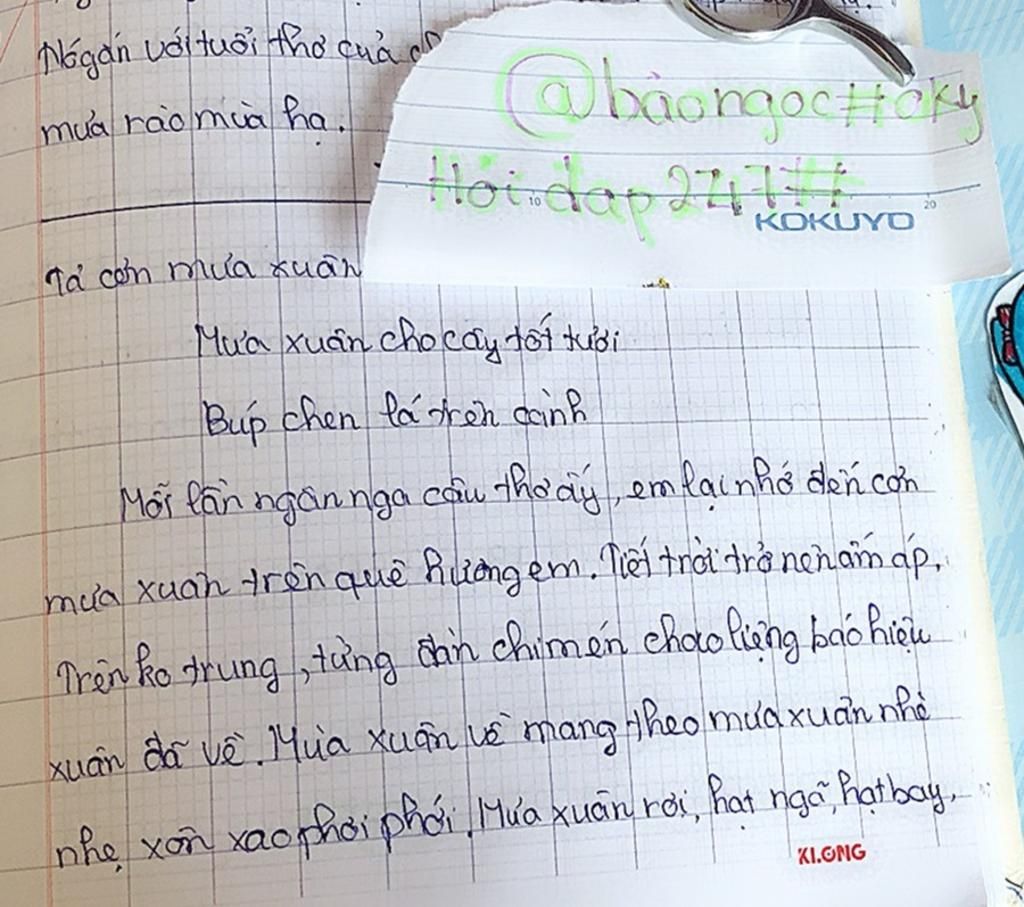 Nó gắn với tuổi thơ của
mưa rào mùa hạ.
@bảongọc##oky
Hỏi đáp247##
10 20
KOKUYO
Tả cơn mưa xuân
Mưa xuân cho cây tốt tươi
Búp chen lá trên cành
Mỗi lần ngân nga câu thơ ấy, em lại nhớ đến cơn
mưa xuân trên quê hương em. Tiết trời trở nên ấm áp.
Trên ko trung, từng đàn chim én chao liệng báo hiệu
xuân đã về. Mùa xuân về mang theo mưa xuân nhè
nhẹ, xôn xao phơi phới. Mưa xuân rơi, hạt ngã, hạt bay,
KLONG